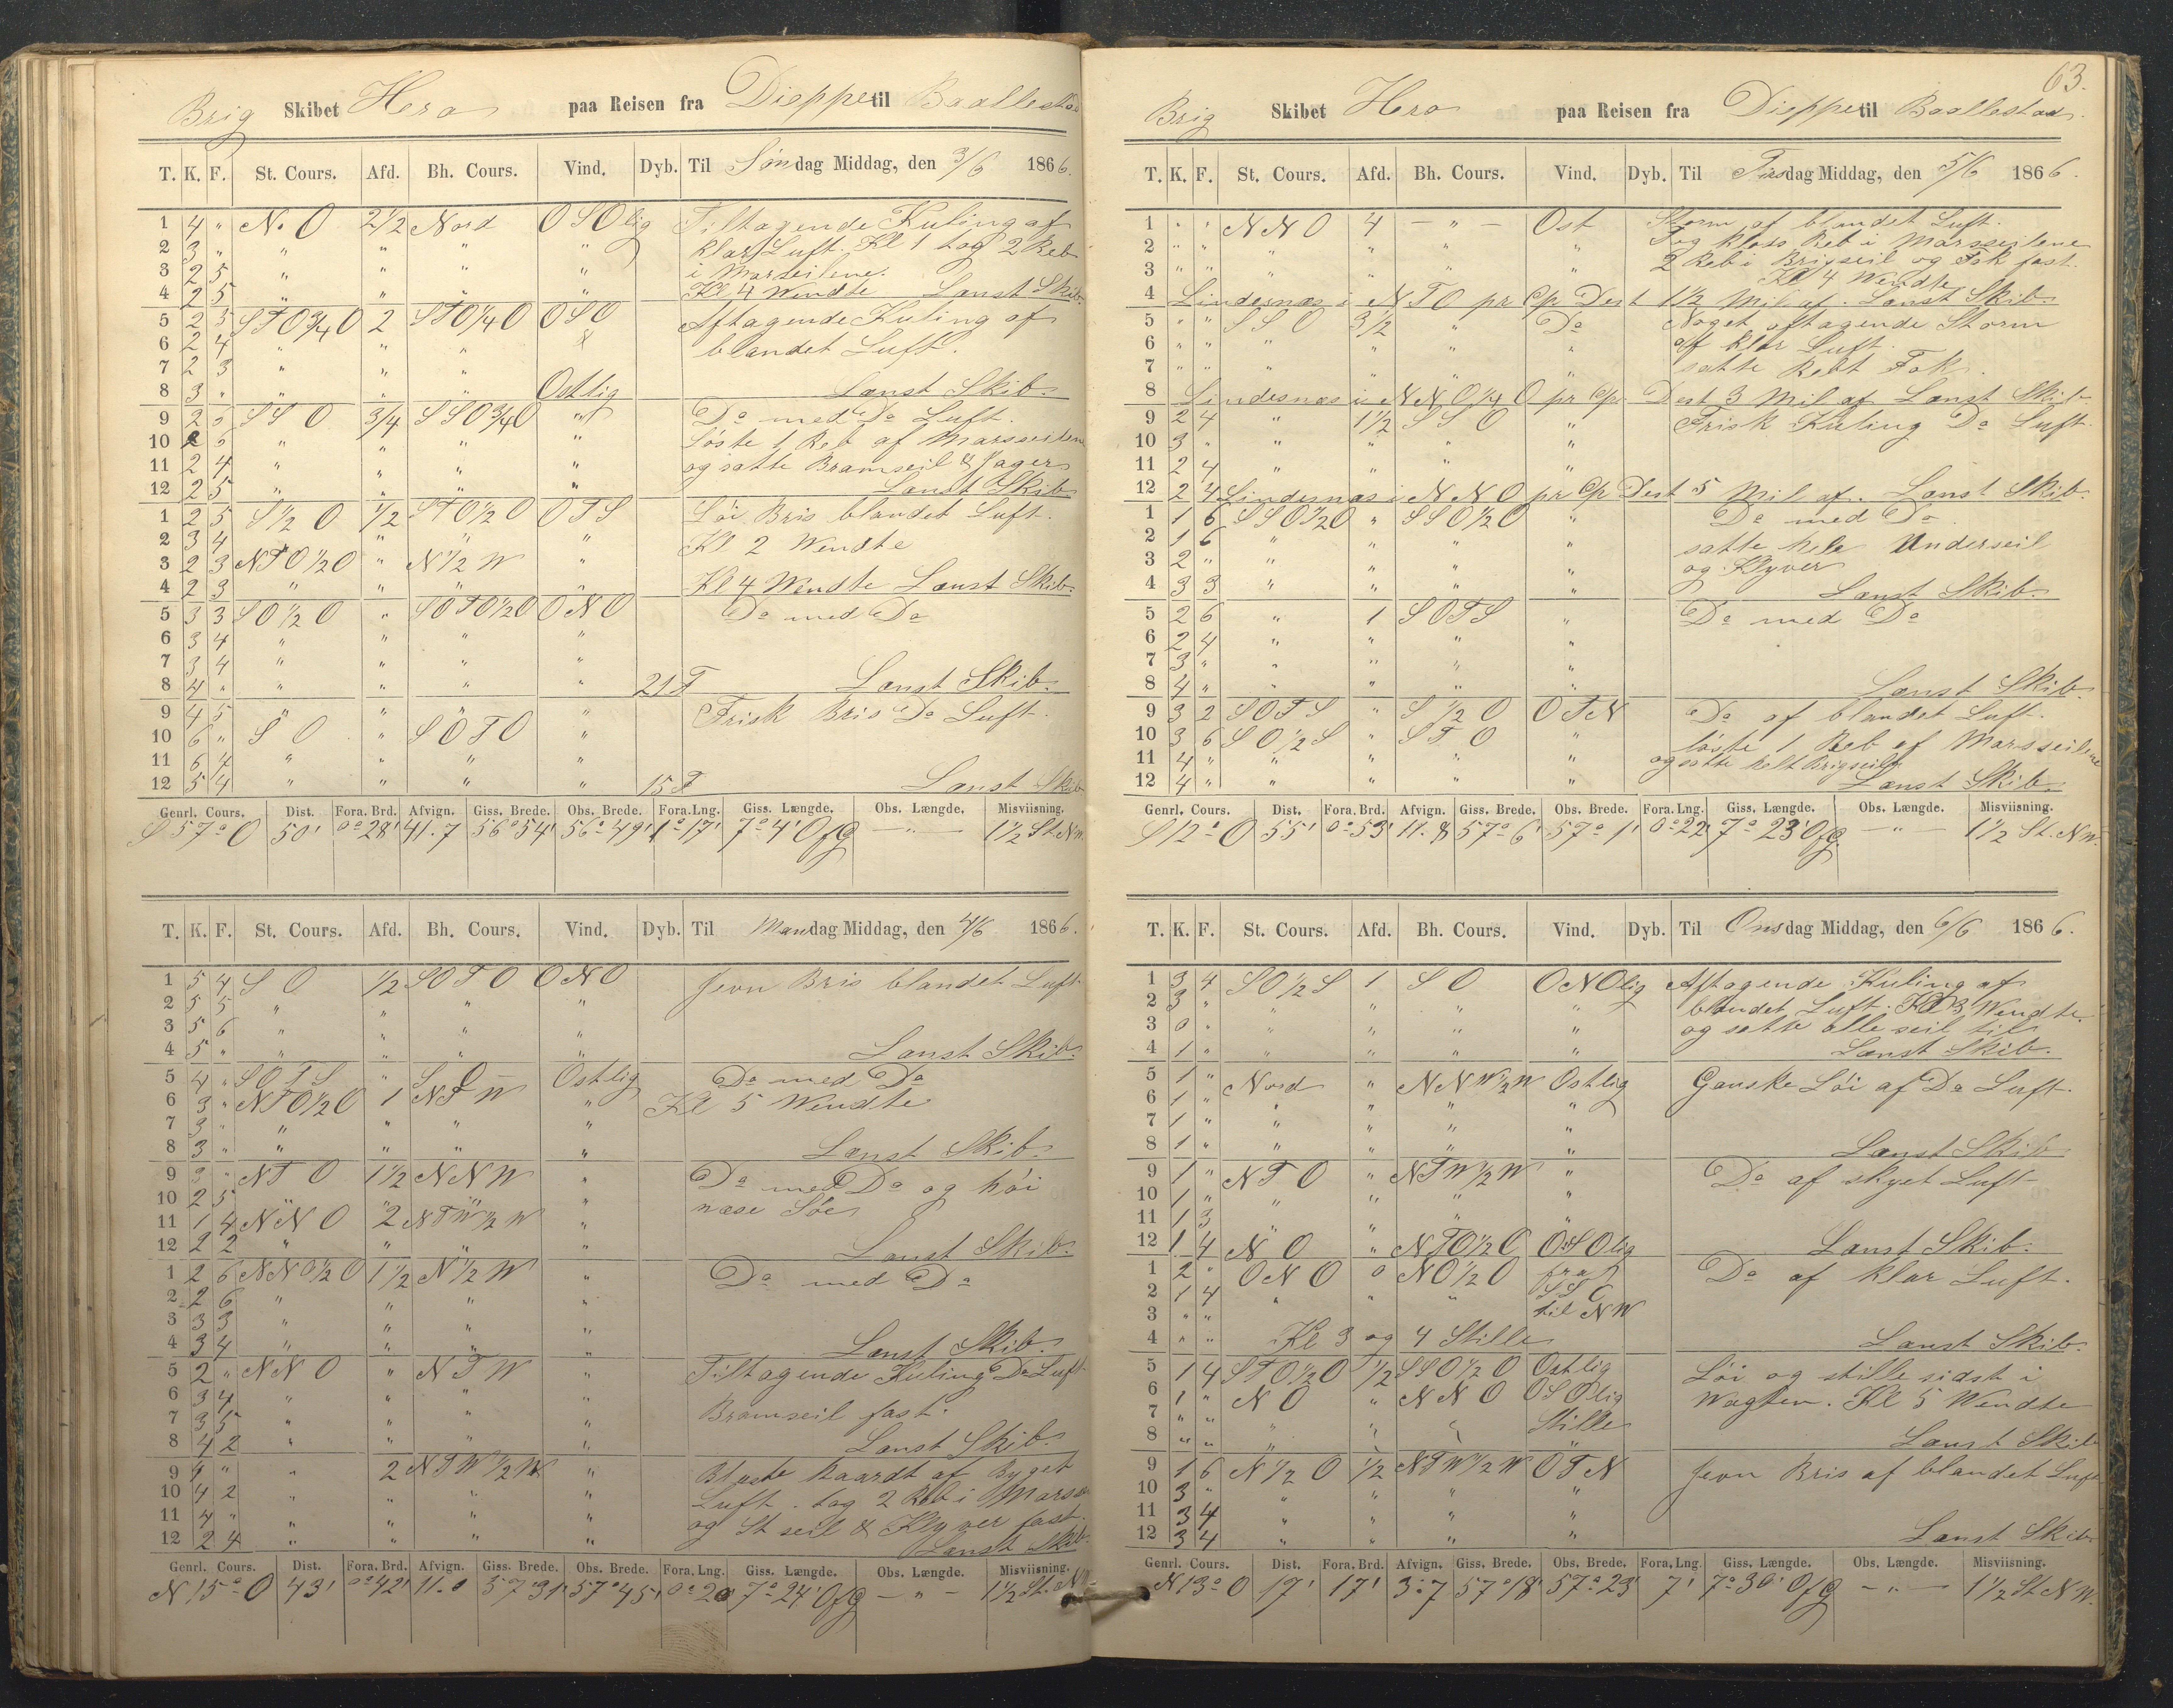 Brig Skibet Hero paa Reisen fra Dieppe til Baallestad
T. K. F. St. Cours. Afd. Bh. Cours. Vind. Dyb. Til Søndag Middag, den 3/6 1866.
1 4 " N. O 2 1/2 Nord O S Olig Tiltagende Kuling af
2 3 " " " " " klar Luft. Kl 1 tog 2 Reb
3 2 5 " " " " i Marseilene.
4 2 5 " " " " Kl 4 Wendte Lænst Skib.
5 2 5 S T O 3/4 O 2 S T O 1/4 O O S O Aftagende Kuling af
6 2 4 " " " blandet Luft.
7 2 3 " " "
8 3 " " " " Ostlig Lænst Skib.
9 2 5 S S O 3/4 S S O 3/4 O " Do med Do Luft.
10 2 6 " " " " Løste 1 Reb af Marsseilene
11 2 4 " " " " og satte Bramseil & Jager
12 2 5 " " " " Lænst Skib
1 2 5 S 1/2 O 1/2 S T O 1/2 O O T S Løi Bris blandet Luft.
2 3 4 " " " Kl 2 Wendte
3 2 3 N T O 1/2 O " N 1/2 W "
4 2 3 " " " " Kl 4 Wendte Lænst Skib.
5 3 3 S O 1/2 O " S O T O 1/2 O O N O Do med Do
6 3 4 " " " "
7 3 4 " " " "
8 4 " " " " " 21 F Lænst Skib.
9 4 5 " " " " Frisk Bris Do Luft.
10 6 " S O " S O T O "
11 6 4 " " " "
12 5 4 " " " " 15 F Lænst Skib
Genrl. Cours. Dist. Fora. Brd. Afvign. Giss. Brede. Obs. Brede. Fora.Lng. Giss. Længde. Obs. Længde. Misviisning.
S 57° O 50' 0° 28' 41.7 56° 54' 56° 49' 1° 17' 7° 4' O f G — " — 1 1/2 St. N W.
T. K. F. St. Cours. Afd. Bh. Cours. Vind. Dyb. Til Mandag Middag, den 4/6 1866.
1 5 4 S O 1/2 S O T O O N O Jevn Bris blandet Luft
2 5 5 " " " "
3 5 6 " " "
4 5 " " " " " Lænst Skib.
5 4 " S O T S " S O Ostlig Do med Do
6 3 " N T O 1/2 O 1 N T W " Kl 5 Wendte
7 3 " " " "
8 3 " " " " " Lænst Skib
9 3 " N T O 1 1/2 N N W " Do med Do og høi
10 2 5 " " " " næse Søe
11 1 4 N N O 2 N T W 1/2 W "
12 2 2 " " " " Lænst Skib.
1 2 6 N N O 1/2 O 1 1/2 N 1/2 W " Do med Do
2 2 6 " " " "
3 3 3 " " " "
4 3 4 " " " " Lænst Skib.
5 2 " N N O " N T W " Tiltagende Kuling Do Luft
6 3 4 " " " "
7 3 5 " " " " Bramseil fast.
8 4 2 " " " " Lænst Skib.
9 4 " " 2 N T W 1/2 W " Blæste haardt af Byget
10 4 2 " " " " Luft. tog 2 Reb i Marss
11 4 " " " " " og St seil & Klyver fast.
12 2 4 " " " " Lænst Skib.
Genrl. Cours. Dist. Fora. Brd. Afvign. Giss. Brede. Obs. Brede. Fora. Lng. Giss. Længde. Obs. Længde. Misviisning.
N 15° O 43' 0° 42' 11.0 57° 31' 57° 45' 0° 20 7° 24' O f G — " — 1 1/2 St. N W.
63.
Brig Skibet Hero paa Reisen fra Dieppe til Baallestad.
T. K. F. St. Cours. Afd. Bh. Cours. Vind. Dyb. Til Tirsdag Middag, den 5/6 1866.
1 " " N N O 4 — " — Ost Storm af blandet Luft.
2 " " " " " " Tog kloss Reb i Marsseilene
3 " " " " " " 2 Reb i Brigseil og Fok fast.
Kl 4 Wendte
4 Lindesnæs i N T O pr Cp Dest 1 1/2 Mil af. Lænst Skib.
5 " " S S O 3 1/2 " Do Noget aftagende Storm
6 " " " " " " af klar Luft.
7 " " " " " " satte Rebt Fok.
8 Lindesnæs i N N O 1/4 O pr Cp. Dest 3 Mil af Lænst Skib
9 2 4 " 1 1/2 S S O " Frisk Kuling Do Luft.
10 3 " " " " "
11 2 4 " " " "
12 2 4 Lindesnæs i N N O pr Cp Dest 5 Mil af. Lænst Skib.
1 1 6 S S O 1/2 O " S S O 1/2 O " Do med Do
2 1 6 " " " " satte hele Underseil
3 2 " " " " " og Klyver
4 3 3 " " " " Lænst Skib.
5 2 6 " 1 S O T S " Do med Do
6 2 4 " " "
7 3 " " " " "
8 4 " " " " " Lænst Skib.
9 3 2 S O T S " S 1/2 O O T N Do af blandet Luft.
10 3 6 S O 1/2 S " S T O " løste 1 Reb af Marsseilene
11 4 " " " " " og satte helt Brigseil
12 4 " " " " " Lænst Skib.
Genrl. Cours. Dist. Fora. Brd. Afvign. Giss. Brede. Obs. Brede. Fora. Lng. Giss. Længde. Obs. Længde. Misviisning.
S 12° O 55' 0° 53' 11.8 57° 6' 57° 1' 0° 22' 7° 23' O f G. — " — 1 1/2 St. N W.
T. K. F. St. Cours. Afd. Bh. Cours. Vind. Dyb. Til Onsdag Middag, den 6/6 1866.
1 3 4 S O 1/2 S 1 S O O N Olig Aftagende Kuling af
2 3 " " " " " blandet Luft. Kl 3 Wendte.
3 0 " " " " " og satte alle seil til
4 1 " " " " " Lænst Skib.
5 1 " Nord " N N W 1/2 W Ostlig Ganske Løi af Do Luft.
6 1 " " " " "
7 1 " " " " "
8 1 " " " " " Lænst Skib
9 1 " N T O " N T W 1/2 W " Do af skyet Luft
10 1 " " " " "
11 1 3 " " "
12 1 4 N O " N T O 1/2 O O S Olig Lænst Skib.
1 2 " O N O 0 N O 1/2 O fra Do af klar Luft.
2 1 4 " " " S S O
3 " " til N W
4 " " Kl 3 og 4 Stille Lænst Skib.
5 1 4 S T O 1/2 O 1/2 S S O 1/2 O Ostlig Løi og stille sidst i
6 1 " N O " N N O O S Olig Wagten. Kl 5 Wendte
7 " " " " " Stille
8 " " " " " " Lænst Skib
9 1 6 N 1/2 O 1/2 N T W 1/2 W O T N Jevn Bris af blandet Luft
10 3 " " " " "
11 3 4 " " " "
12 3 4 " " " " Lænst Skib.
Genrl. Cours. Dist. Fora. Brd. Afvign. Giss. Brede. Obs. Brede. Fora. Lng Giss. Længde. Obs. Længde. Misviisning.
N 13° O 17' 17' 3.7 57° 18' 57° 23' 7' 7° 30' O f G — " — 1 1/2 St N W.